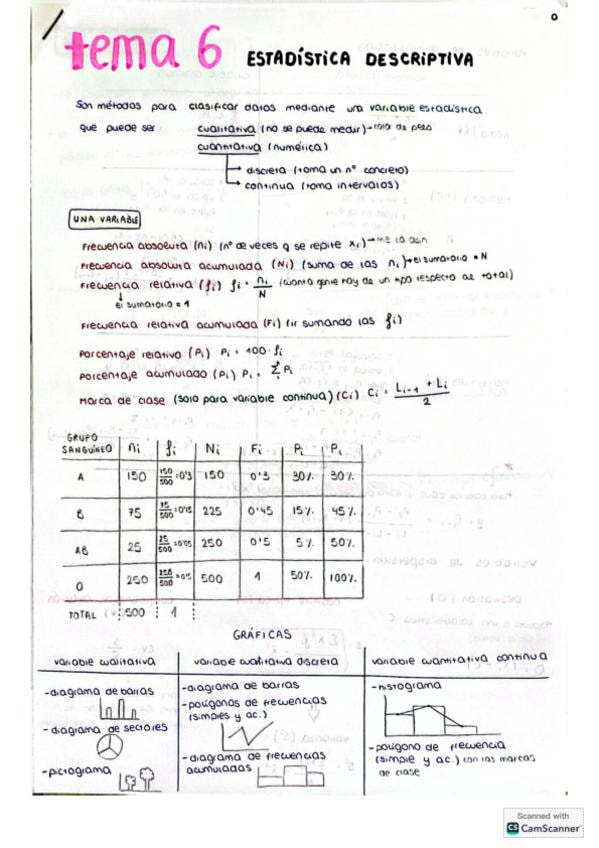 tema 6 ESTADÍSTICA DESCRIPTIVA
Son métodos para clasificar datos mediante una variable estadística
que puede ser cualitativa (no se puede medir)
cuantitativa (numérica)
discreta (toma un nº concreto)
continua (toma intervalos)
UNA VARIABLE
Frecuencia absoluta (ni) (nº de veces q se repite xi) → me la dan
Frecuencia absoluta acumulada (Ni) (suma de las ni) → el sumatorio = N
Frecuencia relativa (fi) fi = ni/N (cuanta gente hay de un tipo respecto al total)
el sumatorio = 1
Frecuencia relativa acumulada (Fi) (ir sumando las fi)
Porcentaje relativo (Pi) Pi = 100 · fi
Porcentaje acumulado (Pi) Pi = Σ Pi
Marca de clase (solo para variable continua) (Ci) Ci = Li-1 + Li / 2
GRUPO SANGUÍNEO ni fi Ni Fi Pi Pi
A 150 150/500 = 0'3 150 0'3 30% 30%
B 75 75/500 = 0'15 225 0'45 15% 45%
AB 25 25/500 = 0'05 250 0'5 5% 50%
O 250 250/500 = 0'5 500 1 50% 100%
TOTAL 500 1
GRÁFICAS
variable cualitativa variable cualitativa discreta variable cuantitativa continua
-diagrama de barras -diagrama de barras -histograma
-polígonos de frecuencias
(simples y ac.)
-diagrama de sectores
-diagrama de frecuencias
acumuladas
-polígono de frecuencia
(simple y ac.) con las marcas
de clase
-pictograma
Scanned with
CS CamScanner